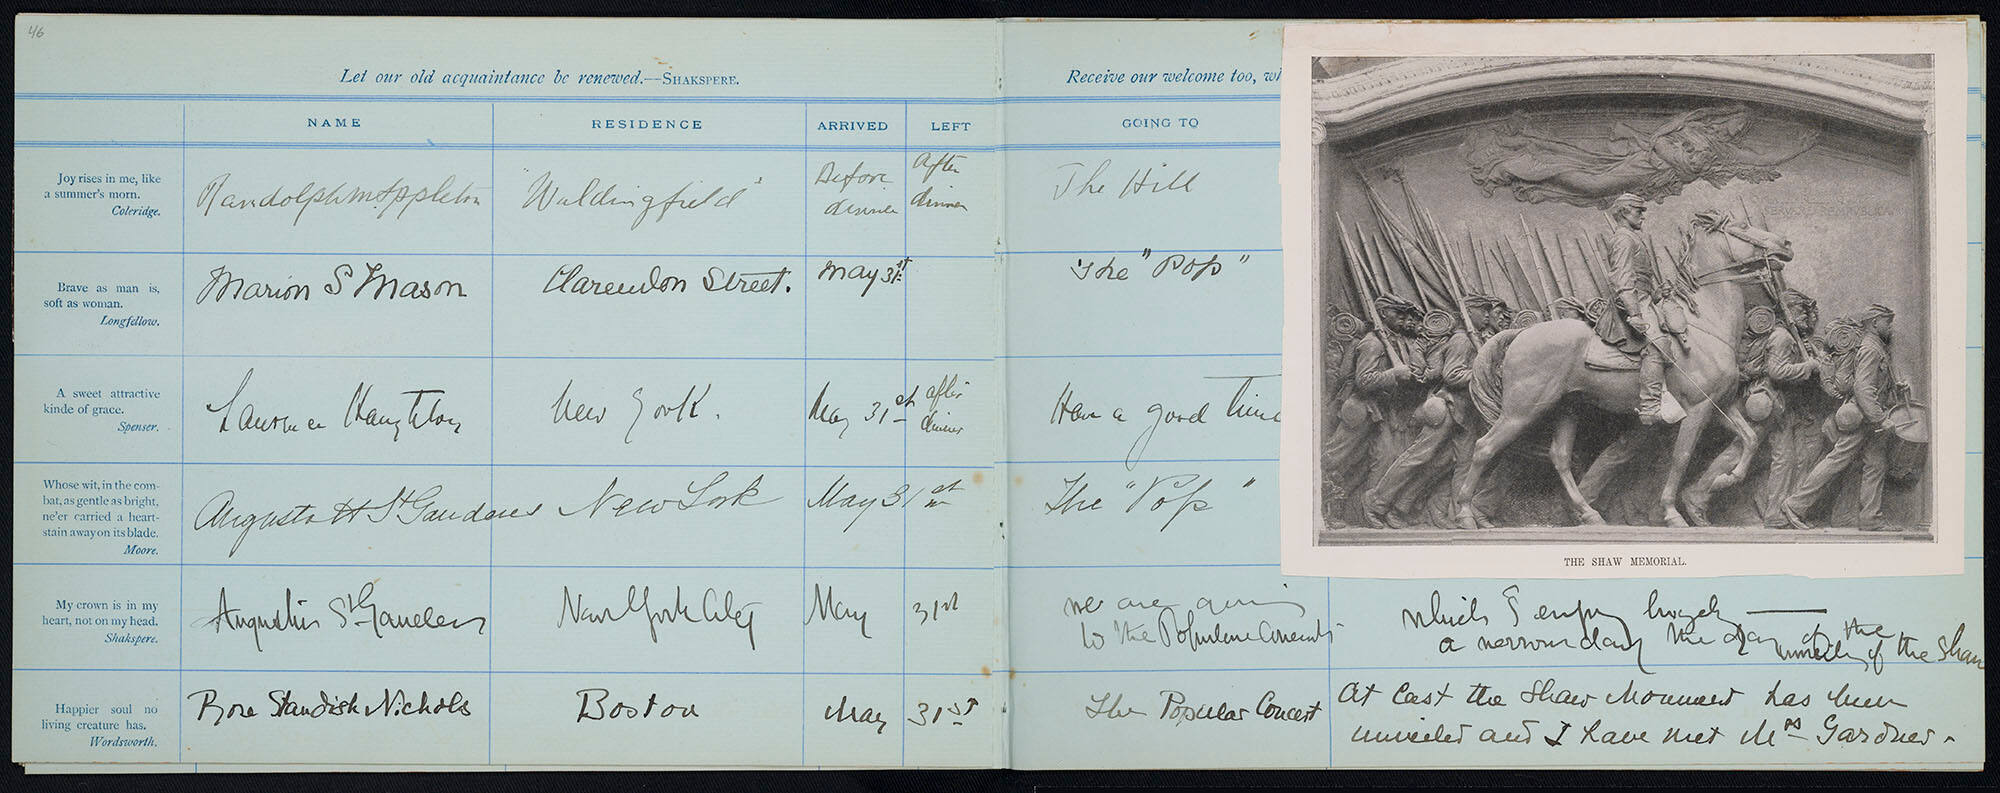 46
Let our old acquaintance be renewed.—SHAKSPERE.
Receive our welcome too,
NAME RESIDENCE ARRIVED LEFT GOING TO
Joy rises in me, like
a summer's morn.
Coleridge.
Randolph M Appleton "Waldingfield" Before
dinner After
dinner The Hill
Brave as man is,
soft as woman.
Longfellow.
Marion S Mason Clarendon Street. May 31st The "Pop"
A sweet attractive
kinde of grace.
Spenser.
New York. May 31st after
dinner Have a good time
Whose wit, in the com-
bat, as gentle as bright,
ne'er carried a heart-
stain away on its blade.
Moore.
Augusta H St Gaudens New York May 31st The "Pop"
My crown is in my
heart, not on my head.
Shakspere.
Augustus St Gaudens New York City May 31st we are going
to the Popular Concerts
which I enjoy hugely —
a narrow day the day of the
unveiling of the Shaw
Happier soul no
living creature has.
Wordsworth.
Rose Standish Nichols Boston May 31st The Popular Concert
At last the Shaw Monument has been
unveiled and I have met Mrs Gardner.
THE SHAW MEMORIAL.